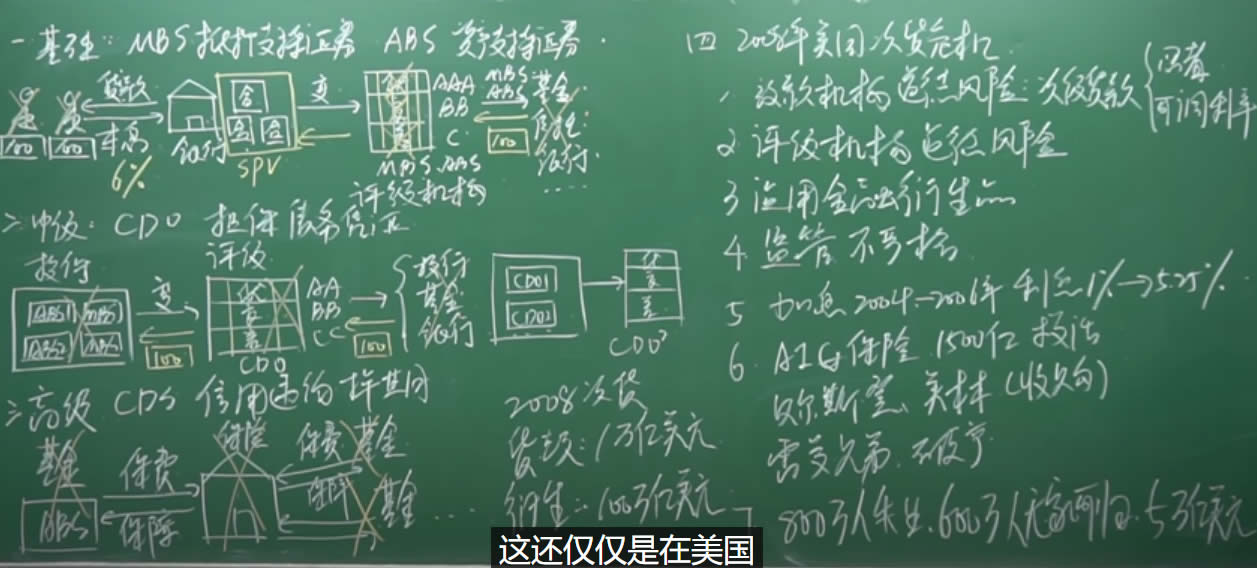 一基础：MBS 抵押支持证券 ABS 资产支持证券
贷款
本息
6%
100 100
银行
SPV
变
优
AAA
BB
C
MBS.ABS
评级机构
MBS
ABS
100
基金
保险
银行
……
二中级：CDO 担保债务凭证
投行
ABS1 MBS1
ABS2
变
100
评级
优
差
CDO
AA
BB
CC
100
投行
基金
银行
CDO1
CDO2
优
差
CDO²
三高级 CDS 信用违约掉期
基金
ABS
保费
保障
保险
保费
保障
基金
基金
……
2008次贷
贷款：1万亿美元
衍生：100万亿美元
四 2008年美国次贷危机
1 放款机构道德风险：次级贷款
可调利率
2 评级机构道德风险
3 运用金融衍生品
4 监管不严格
5 加息2004—2006年 利息1%→5.25%
6. AIG保险 1500亿 救活
贝尔斯登、美林（收购）
雷曼兄弟 破产
800万人失业、600万人无家可归、5万亿美元
这还仅仅是在美国